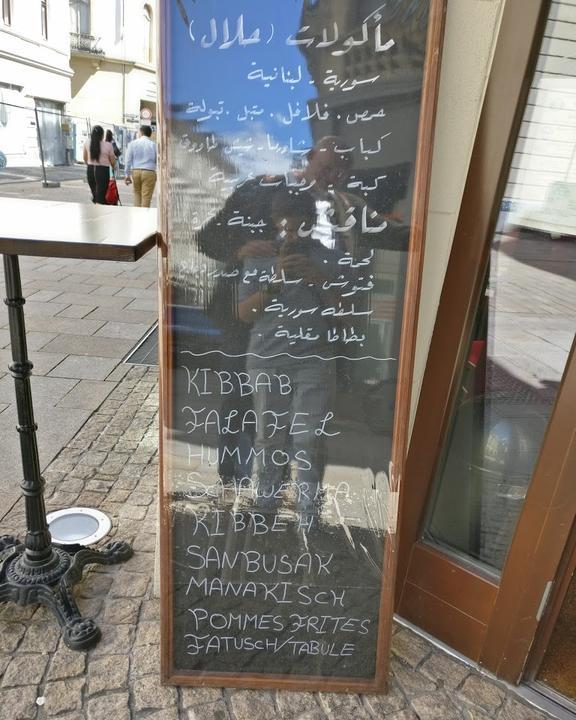 مأكولات (حلال)
سورية - لبنانية
حمص . فلافل . متبل . تبولة
كباب - شاورما - شيش طاووق
كبة - وجبات عربية
مناقيش : جبنة .
لحمة .
فتوش - سلطة مع صدر دجاج
سلطه سورية .
بطاطا مقلية .
KIBBAB
FALAFEL
HUMMOS
SCHAWERMA
KIBBEH
SANBUSAK
MANAKISCH
POMMES FRITES
FATUSCH/TABULE